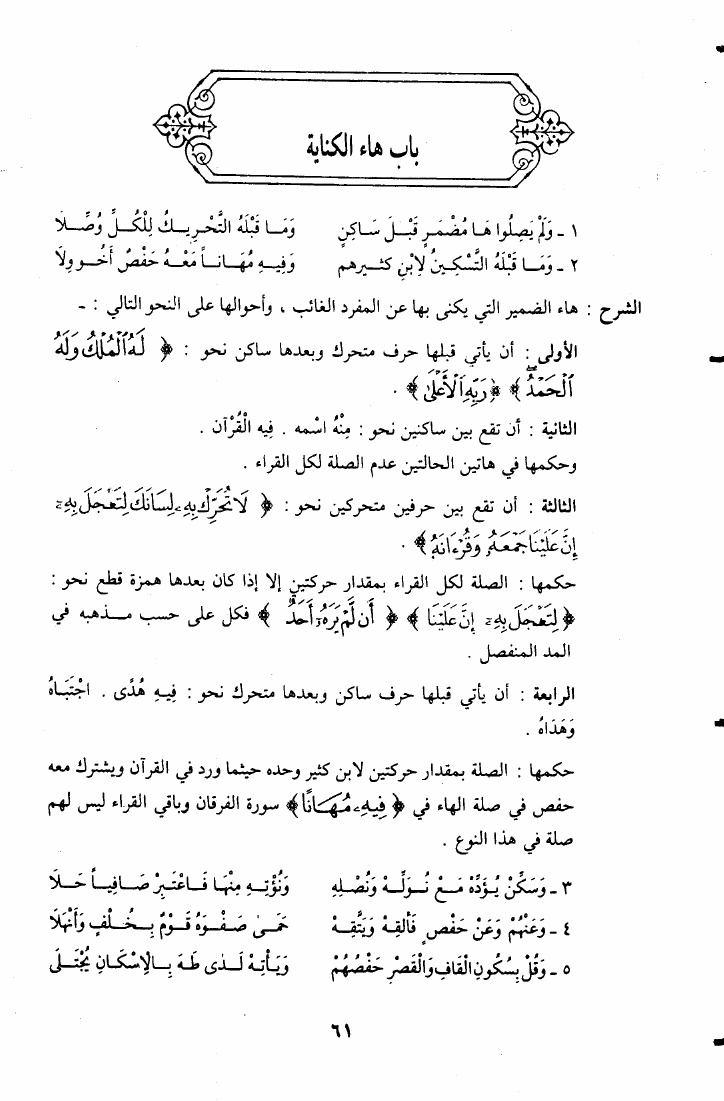 باب هاء الكناية
١ - وَلَمْ يَصِلُوا هَا مُضْمَرٍ قَبْلَ سَاكِنٍ وَمَا قَبْلَهُ التَّحْرِيكُ لِلْكُلِّ وُصِّلَا
٢ - وَمَا قَبْلَهُ التَّسْكِينُ لِابْنِ كَثِيرِهِم وَفِيهِ مُهَاناً مَعْهُ حَفْصٌ أَخُو وِلَا
الشرح : هاء الضمير التي يكنى بها عن المفرد الغائب ، وأحوالها على النحو التالي : ـ
الأولى : أن يأتي قبلها حرف متحرك وبعدها ساكن نحو : ﴿ لَهُ ٱلْمُلْكُ وَلَهُ
ٱلْحَمْدُ ﴾ ﴿ رَبِّهِ ٱلْأَعْلَىٰ ﴾ .
الثانية : أن تقع بين ساكنين نحو : مِنْهُ اسْمه . فِيهِ الْقُرْآن .
وحكمها في هاتين الحالتين عدم الصلة لكل القراء .
الثالثة : أن تقع بين حرفين متحركين نحو : ﴿ لَا تُحَرِّكْ بِهِۦ لِسَانَكَ لِتَعْجَلَ بِهِۦٓ
إِنَّ عَلَيْنَا جَمْعَهُۥ وَقُرْءَانَهُۥ ﴾ .
حكمها : الصلة لكل القراء بمقدار حركتين إلا إذا كان بعدها همزة قطع نحو :
﴿ لِتَعْجَلَ بِهِۦٓ إِنَّ عَلَيْنَا ﴾ ﴿ أَن لَّمْ يَرَهُۥٓ أَحَدٌ ﴾ فكل على حسب مذهبه في
المد المنفصل .
الرابعة : أن يأتي قبلها حرف ساكن وبعدها متحرك نحو : فِيهِ هُدًى . اجْتَبَاهُ
وَهَدَاهُ .
حكمها : الصلة بمقدار حركتين لابن كثير وحده حيثما ورد في القرآن ويشترك معه
حفص في صلة الهاء في ﴿ فِيهِۦ مُهَانًا ﴾ سورة الفرقان وباقي القراء ليس لهم
صلة في هذا النوع .
٣ - وَسَكِّنْ يُؤَدِّهْ مَعْ نُوَلِّهْ وَنُصْلِهِ وَنُؤْتِهِ مِنْهَا فَاعْتَبِرْ صَافِياً حَلَا
٤ - وَعَنْهُمْ وَعَنْ حَفْصٍ فَأَلْقِهْ وَيَتَّقِهْ حَمَىٰ صَفْوَهُ قَوْمٌ بِخُلْفٍ وَأَنْهَلَا
٥ - وَقُلْ بِسُكُونِ الْقَافِ وَالْقَصْرِ حَفْصُهُمْ وَيَأْتِهْ لَدَى طَهَ بِالْإِسْكَانِ يُجْتَلَى
٦١